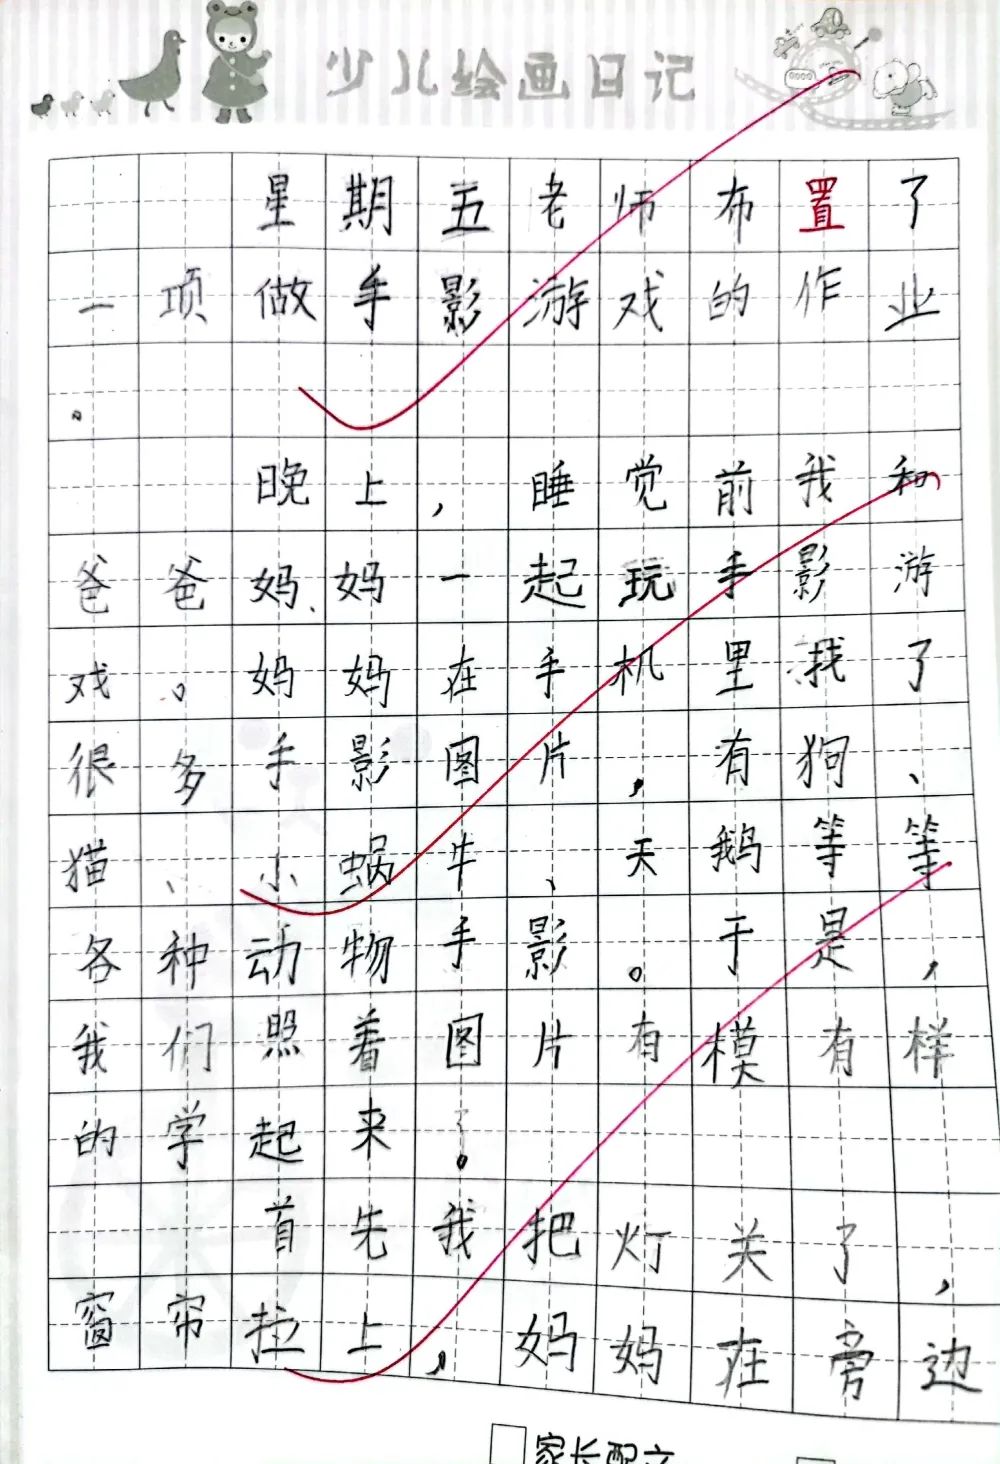 少儿绘画日记
星期五老师布置了
一项做手影游戏的作业
。
晚上，睡觉前我和
爸爸妈妈一起玩手影游
戏。妈妈在手机里找了
很多手影图片，有狗、
猫、小蜗牛、天鹅等等
各种动物手影。于是，
我们照着图片有模有样
的学起来了。
首先我把灯关了，
窗帘拉上，妈妈在旁边
家长配文